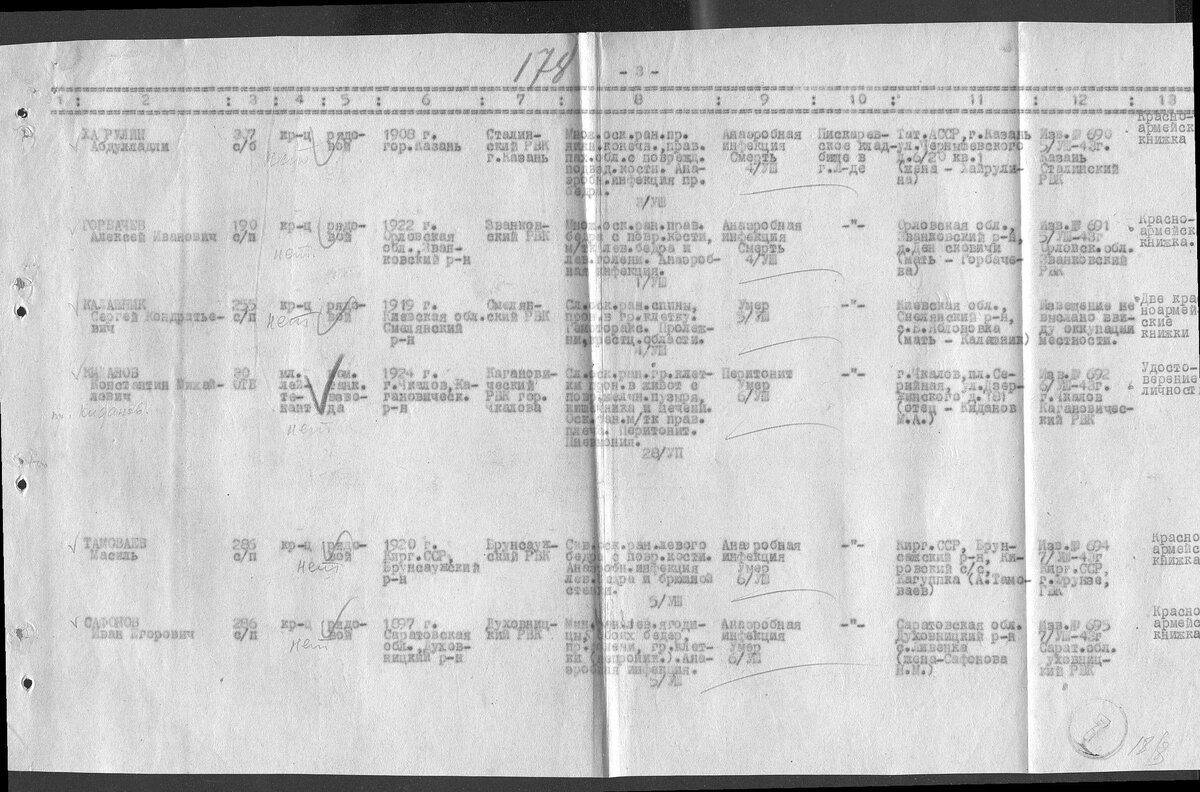 178
- 3 -
1 : 2 : 3 : 4 : 5 : 6 : 7 : 8 : 9 : 10 : 11 : 12 : 13
ХАЙРУЛИН
Абдулладли
с/б
кр-ц
рядо-
вой
1908 г.
гор.Казань
Сталин-
ский РВК
г.Казань
Множ.оск.ран.пр.
нижн.конечн.,прав.
пах.обл.с поврежд.
подвзд.кости. Ана-
эробн.инфекция пр.
бедра.
Анаэробная
инфекция
Смерть
4/УШ
Пискарев-
ское клад-
бище в
г.Л-де
Тат.АССР,г.Казань
ул.Чернышевского
д.6/20 кв.1
(жена - Хайрули-
на)
Изв.№ 690
5/УШ-43г.
Казань
Сталинский
РВК
Красно-
армейск
книжка
ГОРБАЧЕВ
Алексей Иванович
190
с/п
кр-ц
нет
рядо-
вой
1922 г.
Орловская
обл.,Зван-
ковский р-н
Званков-
ский РВК
Множ.оск.ран.прав.
бедра с повр.кости,
м/тк лев.бедра и
лев.голени. Анаэроб-
ная инфекция.
1/УШ
Анаэробная
инфекция
Смерть
4/УШ
-"-
Орловская обл.,
Званковский р-н,
(мать - Горбаче-
ва)
Изв.№ 691
5/УШ-43г
Орловск.обл.
Званковский
РВК
Красно-
армейск
книжка.
КАЛАШНИК
Сергей Кондратье-
вич
255
с/п
кр-ц
нет
рядо-
вой
1919 г.
Киевская обл.
Смелянский
р-н
Смелян-
ский РВК
Сл.оск.ран.спины,
прон.в гр.клетку.
Гемоторакс. Пролеж-
ни,крестц.области.
4/УШ
Умер
5/УШ
-"-
Киевская обл.,
Смелянский р-н,
с.В.Яблоновка
(мать - Калашник)
Извещение не
выслано вви-
ду оккупации
местности.
Две кра
ноармей
ские
книжки
Константин Михай-
лович
Киданов.
30
ОТБ
мл.
лей-
те-
нант
нет
ком.
танк.
взво-
да
1924 г.
г.Чкалов,Ка-
гановическ.
р-н
Каганови-
ческий
РВК гор.
Чкалова
Сл.оск.ран.гр.клет-
ки прон.в живот с
повр.желчн.пузыря,
кишечника и печени.
Оск.ран.м/тк прав.
плеча. Перитонит.
Пневмония.
28/УП
Перитонит
Умер
6/УШ
-"-
г.Чкалов,пл.Се-
рийная, ул.Дзер-
жинского д.181
(отец - Киданов
М.А.)
Изв.№ 692
6/УШ-43г.
г.Чкалов
Кагановичес-
кий РВК
Удосто-
верение
личност
ТАМОВАЕВ
Масиль
286
с/п
кр-ц
нет
рядо-
вой
1920 г.
Кирг.ССР,
Брунсаужский
р-н
Брунсауж-
ский РВК
Сл.оск.ран.левого
бедра с повр.кости.
Анаэробн.инфекция
лев.бедра и брюшной
стенки.
5/УШ
Анаэробная
инфекция
Умер
6/УШ
-"-
Кирг.ССР, Брун-
сажский р-н, Ки-
ровский с/с,
(А.Тамо-
ваев)
Изв.№ 694
7/УШ-43г
Кирг.ССР,
г.Фрунзе,
РВК
Красно
армейс
книжка
САФОНОВ
Иван Егорович
286
с/п
кр-ц
нет
рядо-
вой
1897 г.
Саратовская
обл.,Духов-
ницкий р-н
Духовниц-
кий РВК
ягоди-
цы, обоих бедер,
гр.клет-
ки Ана-
эробная инфекция.
5/УШ
Анаэробная
инфекция
Умер
6/УШ
-"-
Саратовская обл.
Духовницкий р-н
с.Ливенка
(жена-Сафонова
Изв.№ 695
7/УШ-43г
Сарат.обл.
Духовниц-
кий РВК
Красно
армейс
книжка
7